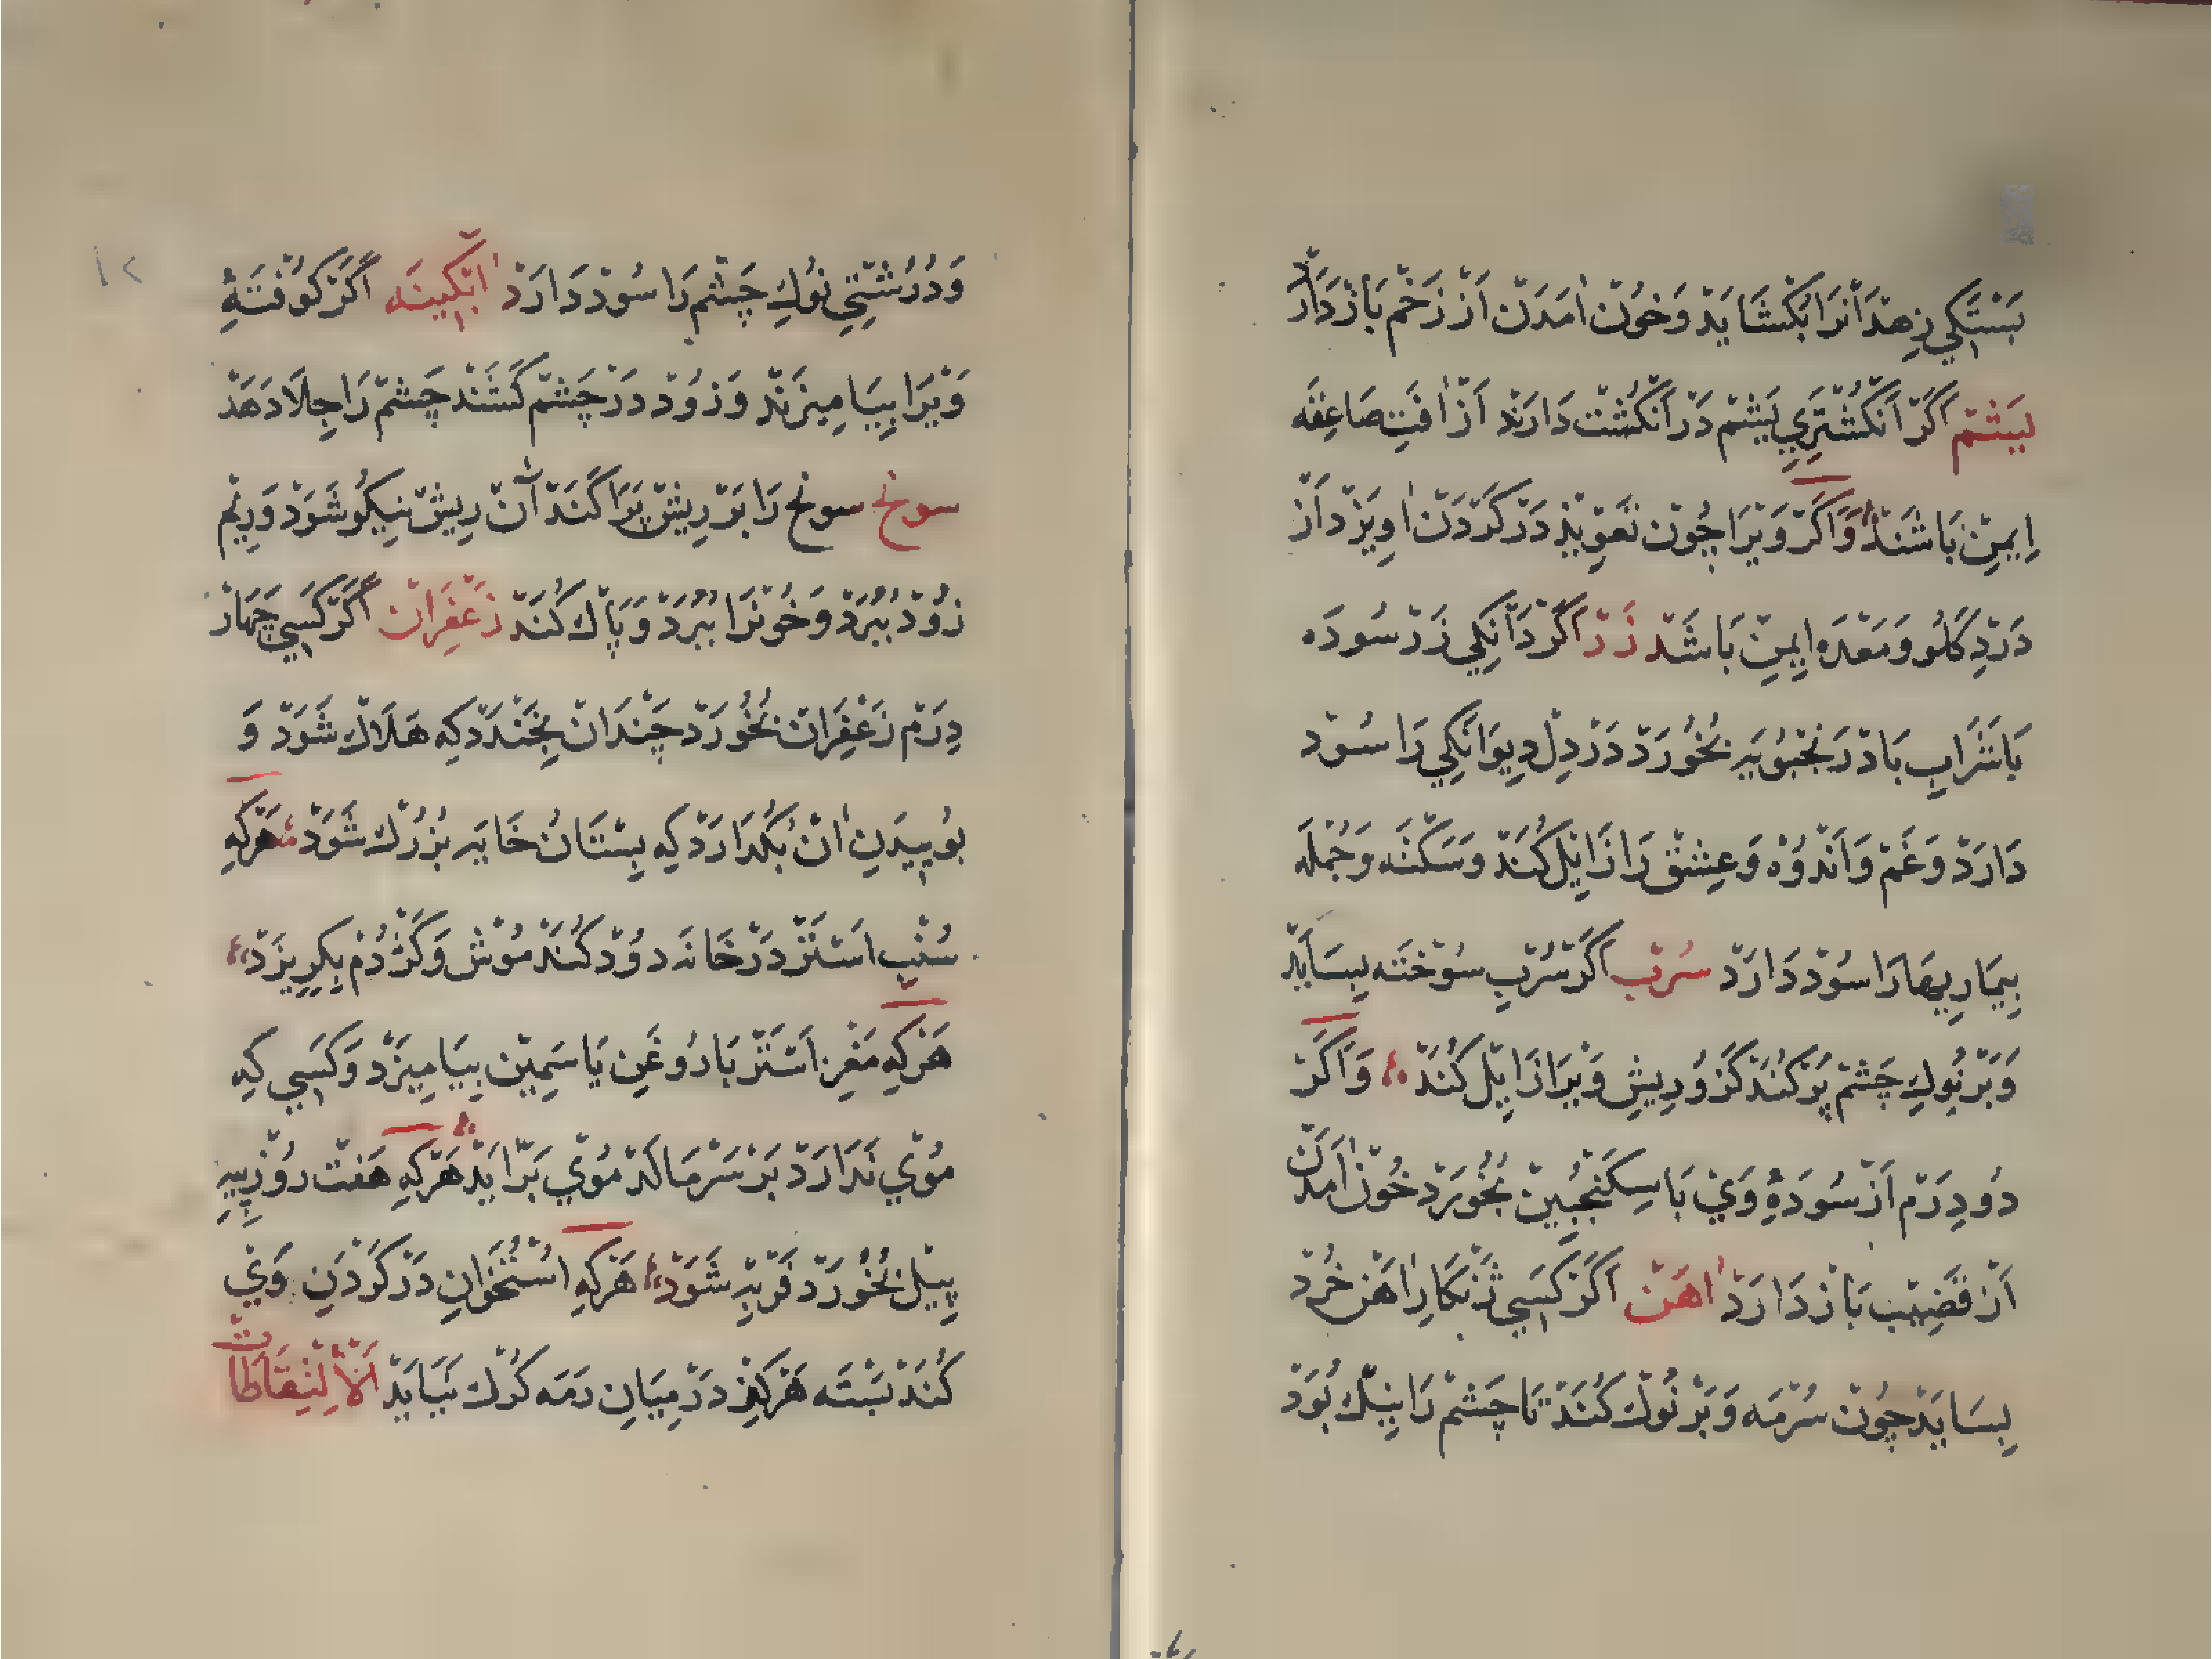 بَسْتَكِي زِهْدَانْرَا بَكْشَايَدْ وَخُونْ اٰمَدَنْ اَزْ زَخْمْ بَازْدَارَدْ
يَشْمْ اَكَرْ اَنْكُشْتَرِيِ يَشْمْ دَرْ اَنْكُشْتْ دَارَنْدْ اَزْ اٰفَتِ صَاعِقَه
اِيمِنْ بَاشَنْدْ وَاَكَرْ وَيْرَا چُونْ تَعْوِيذْ دَرْ كَرْدَنْ اٰوِيزَدْ اَزْ
دَرْدِ كَلُو وَمَعْدَه اِيمِنْ بَاشَدْ زَرْ اَكَرْ دَانْكِي زَرْ سُودَه
بَاشَرَابِ بَادْرَنْجْبُويَه بُخُورَدْ دَرْدِ دِلْ دِيوَانَكِي رَا سُودْ
دَارَدْ وَغَمْ وَاَنْدُوْه وَعِشْقْ رَا زَايِلْ كُنَدْ وَسَكْتَه وَجُمْلَه
بِيمَارِيهَارَا سُودْ دَارَدْ سُرْبْ اَكَرْ سُرْبِ سُوخْتَه بِسَايَدْ
وَبَرْ نُوكِ چَشْمْ پُرْكُنَدْ كَرْ وُرِيشِ وَيْرَا زَايِلْ كُنَدْ وَاَكَرْ
دُو دِرَمْ اَزْ سُودَهِٔ وَيْ بَا سِكَنْجِبِينْ بُخُورَدْ خُونْ اٰمَدَنْ
اَزْ قَضِيبْ بَازْدَارَدْ اٰهَنْ اَكَرْ كَسِي زَنْكَارِ اٰهَنْ خُرْدْ
بِسَايَدْ چُونْ سُرْمَه وَبَرْ نُوكْ كُنَدْ تَا چَشْمْ رَا نِيكْ بُوَدْ
وَدُرُشْتِيِ نُوكِ چَشْم رَا سُودْ دَارَدْ اٰبْكِينَه اَكَرْ كُوفْتَهِٔ
وَيْرَا بِيَامِيزَنْدْ وَزُودْ دَرْ چَشْمْ كَشَنْدْ چَشْمْ رَا جِلَا دَهَدْ
سونح سونح رَا بَرْ رِيشْ پَرَاكَنَدْ آنْ رِيشْ نِيكُو شَوَدْ وَرِيمْ
زُودْ بُبُرَدْ وَخُونْرَا بُبُرَدْ وَپَاكْ كُنَدْ زَعْفَرَانْ اَكَرْ كَسِي چَهَارْ
دِرَمْ زَعْفَرَانْ بُخُورَدْ چَنْدَانْ بِخَنْدَدْ كِه هَلَاكْ شَوَدْ وَ
بُويِيدَنِ اٰنْ بُكْدَارَدْ كِه بِسْتَانُ خَايَه بُزُرْكْ شَوَدْ هَرْكِهِ
سُنْبِ اَسْتَرْ دَرْ خَانَه دُودْ كُنَدْ مُوشْ وَكَژْدُمْ بِكِرِيزَدْ
هَرْكِهِ مَغْزِ اَسْتَرْ بَارُوغَنِ يَاسَمِينْ بِيَامِيزَدْ وَكَسِي كِه
مُوْي نَدَارَدْ بَرْ سَرْ مَالَدْ مُوْي بَرْاَيَدْ هَرْكِهِ هَفْتْ رُوزْ پِيهِ
پِيلْ بُخُورَدْ فَرْبِه شَوَدْ هَرْكِهِ اُسْتُخَوَانِ دَرْ كَرْدَنِ وَيْ
كُنَدْ بَسْتَه هَرْكِزْ دَرْ مِيَانِ رَمَه كُرْكْ نَيَايَدْ اَلْاِلْتِقَاطَاتْ